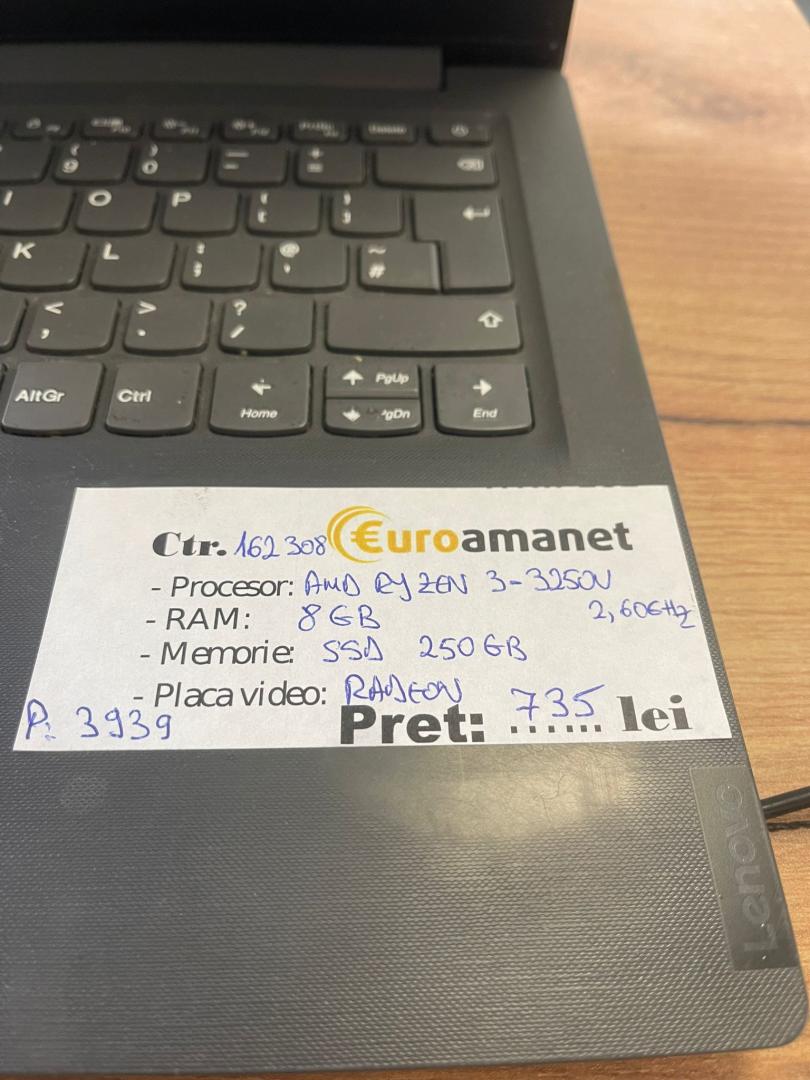 Delete
( 9 ) 0 _ - + =
O P { [ } ]
K L : ; @ ' ~ #
< , > . ? /
AltGr Ctrl Home PgUp PgDn End
Ctr. 162308 €uroamanet
- Procesor: AMD RYZEN 3-3250U
2,60GHz
- RAM: 8 GB
- Memorie: SSD 250GB
- Placa video: RADEON
P: 3939 Pret: 735 lei
Lenovo